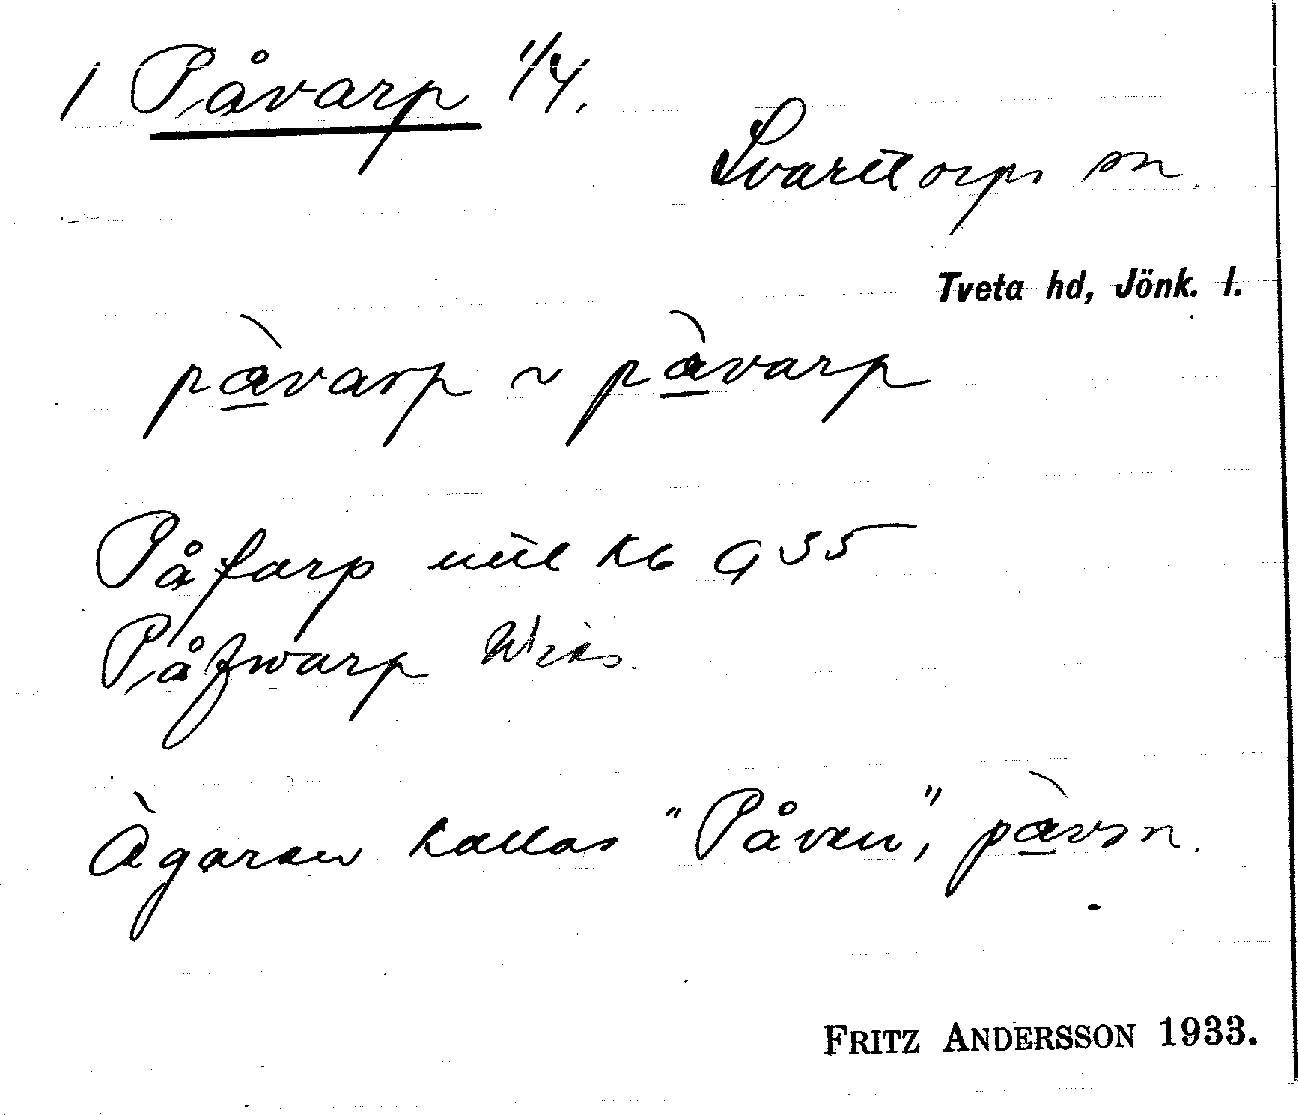 1 Påvarp 1/4.
Svarttorps sn.
Tveta hd, Jönk. l.
pàvarp ~ pàvarp
Påfarp utt kb 9 35
Påfwarp Wies
Ägaren kallas "Påven", pàvən.
FRITZ ANDERSSON 1933.